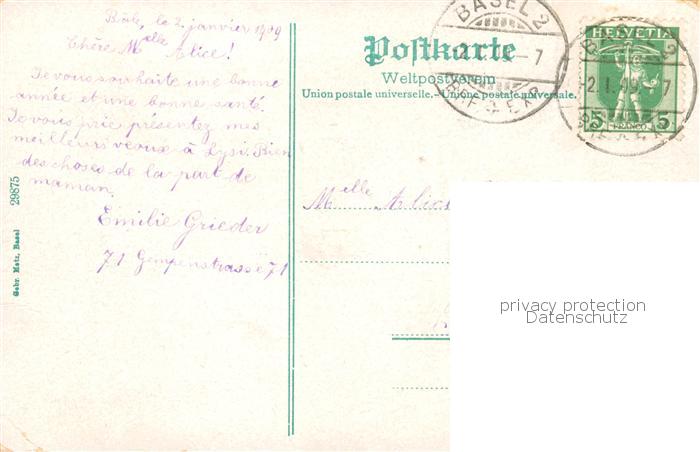 Bâle, le 2. janvier 1909
Chère Melle Alice!
Je vous souhaite une bonne
année et une bonne santé.
Je vous prie présentez mes
meilleurs vœux à Lysi. Bien
des choses de la part de
maman.
Emilie Grieder
71 Gempenstrasse 71
Gebr. Metz, Basel 29875
Postkarte
Weltpostverein
Union postale universelle. – Unione postale universale.
BASEL 2
2.I.09. 7
BRF. EX.
HELVETIA
5 FRANCO 5
Melle Alice
privacy protection
Datenschutz